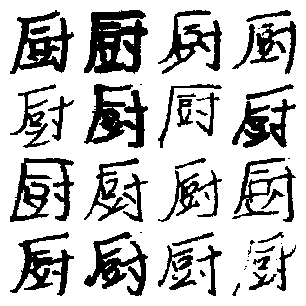 厨厨厨厨
厨厨厨厨
厨厨厨厨
厨厨厨厨